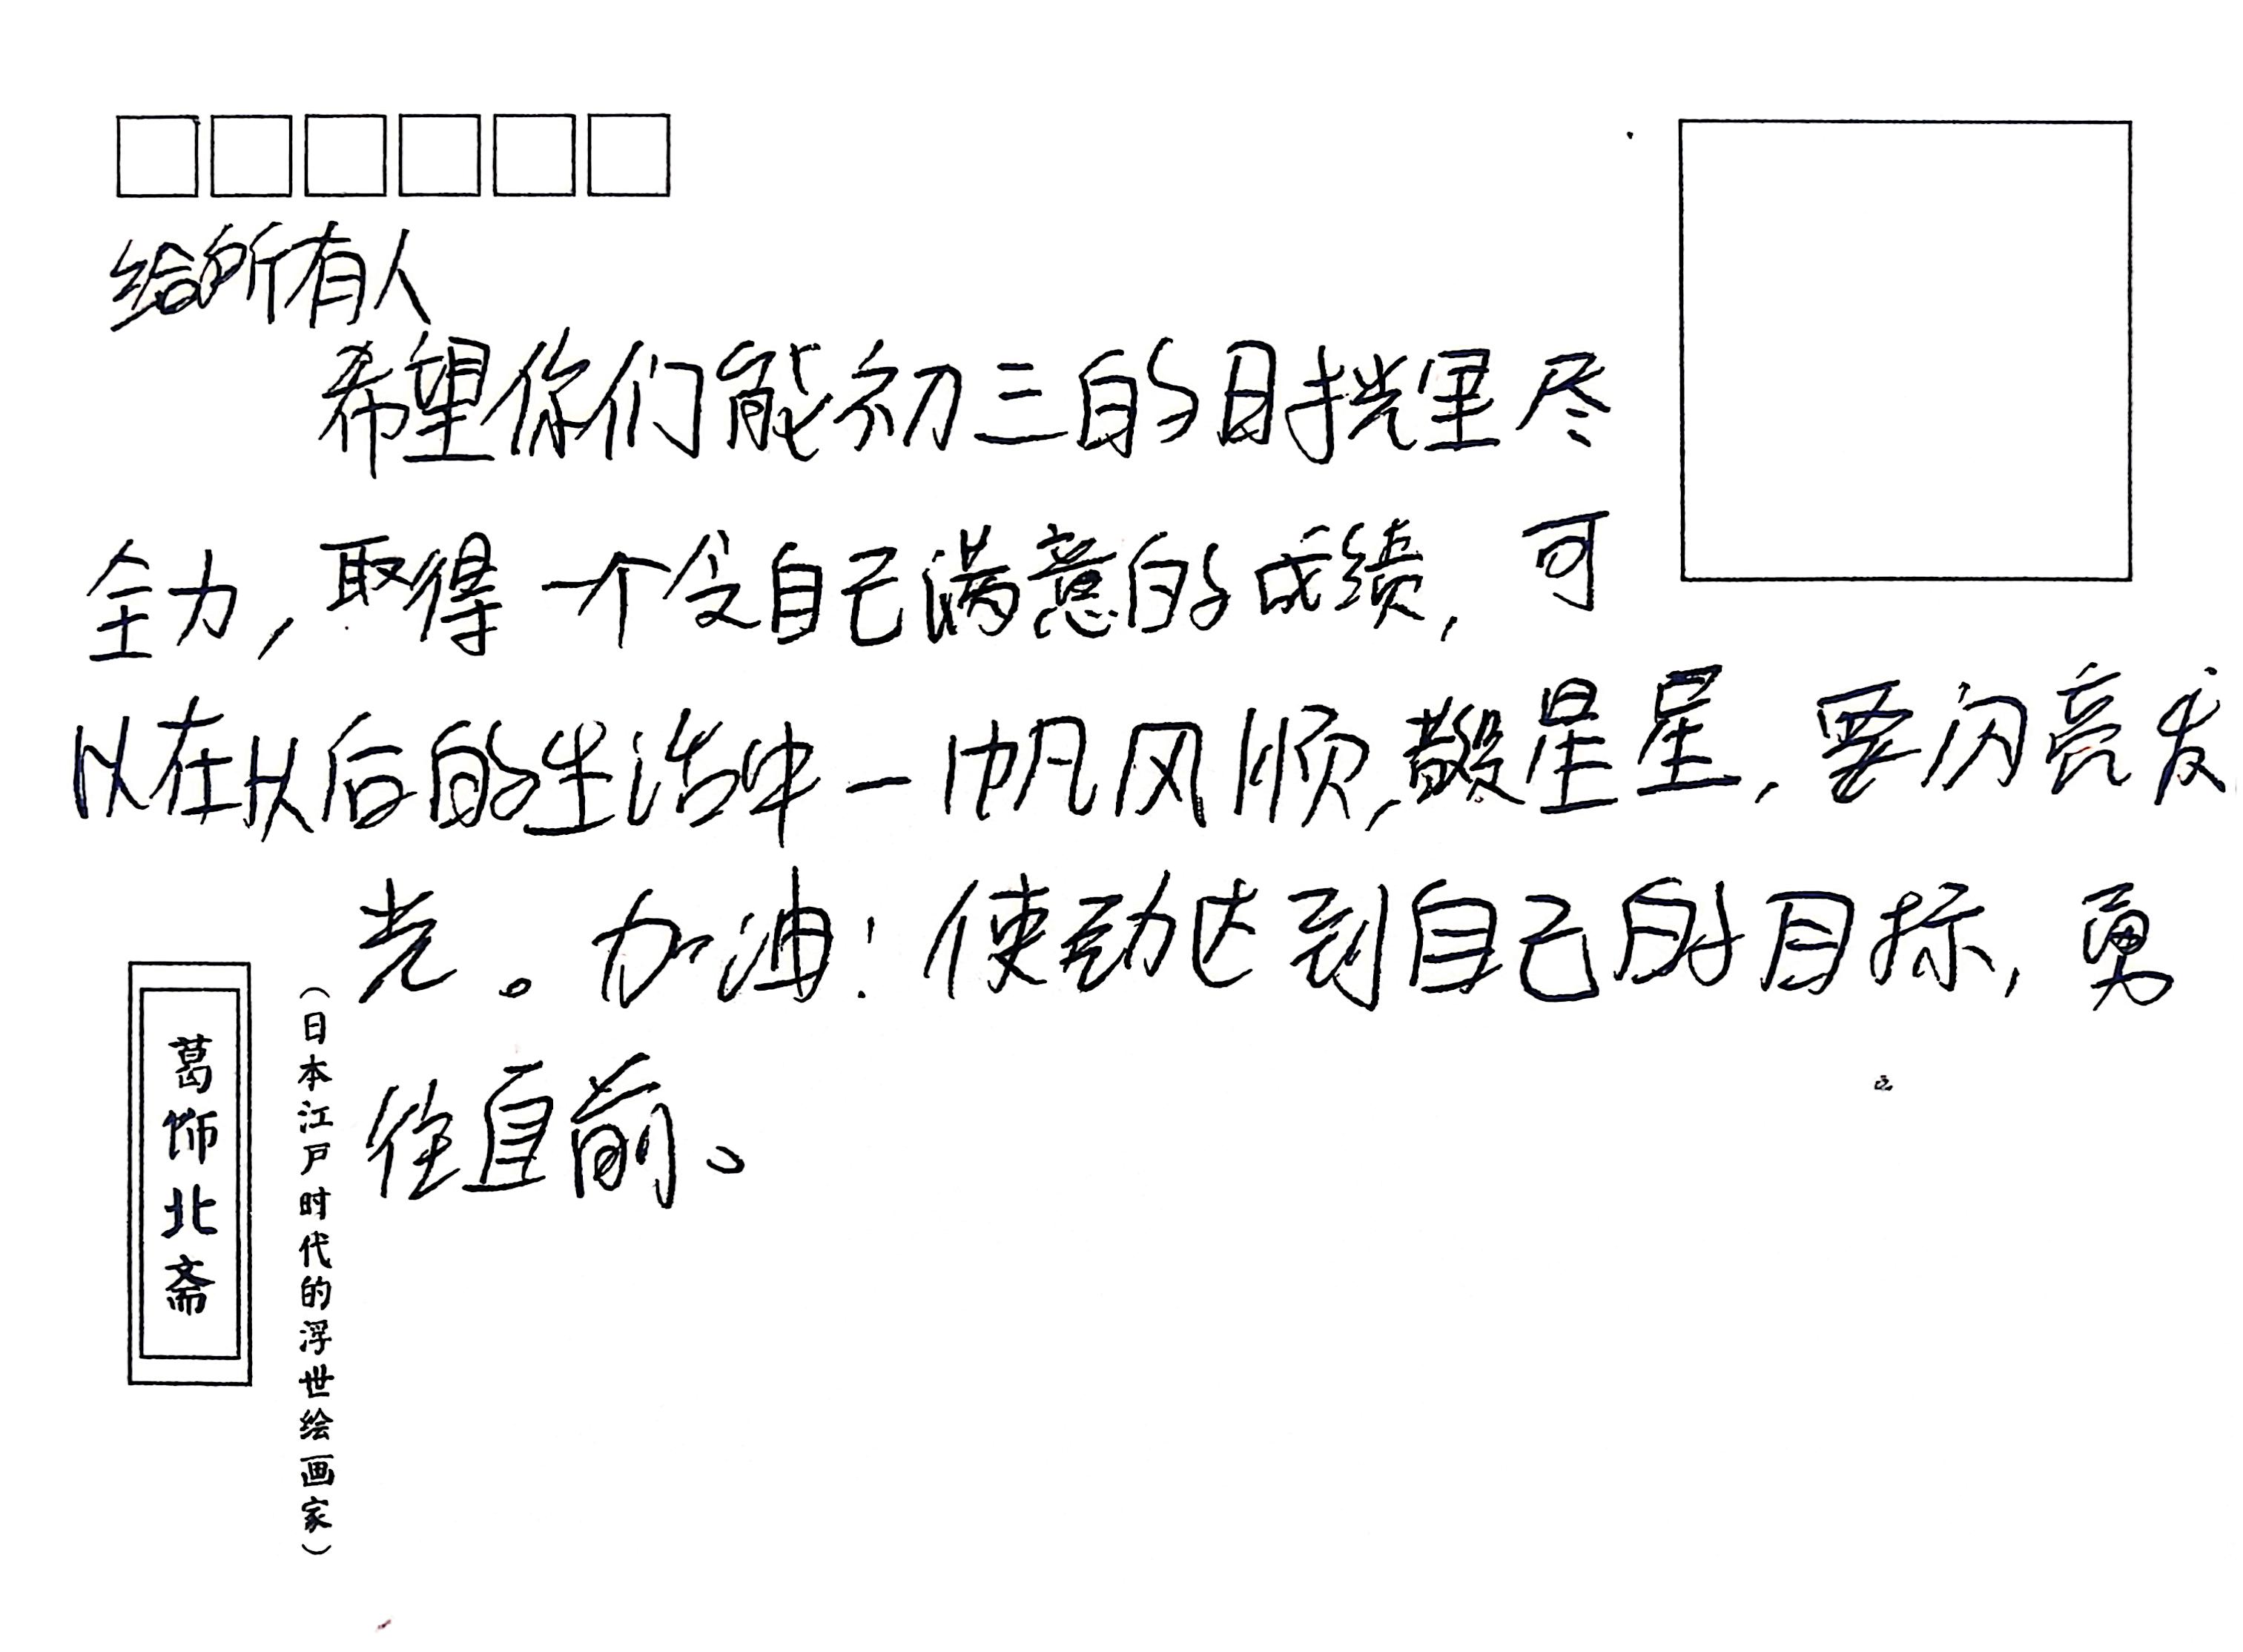 给所有人
希望你们能初三的日挄里尽
全力，取得一个令自己满意的成绩，可
以在以后的生活中一帆风顺，散星星，要闪亮发
光。加油！使劲达到自己的目标，勇
往直前。
葛饰北斋
（日本江户时代的浮世绘画家）